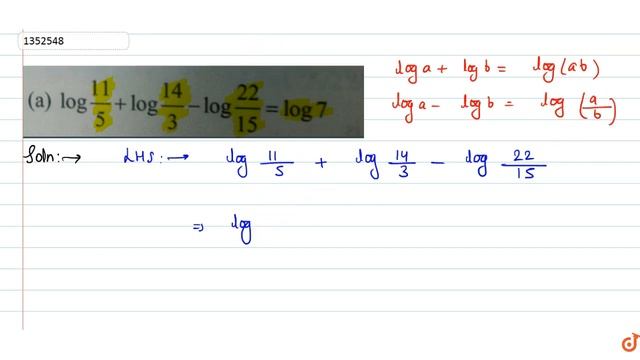 1352548
(a) log 11/5 + log 14/3 − log 22/15 = log 7
log a + log b = log (ab)
log a - log b = log (a/b)
Soln:→ LHS:→ log 11/5 + log 14/3 − log 22/15
⇒ log